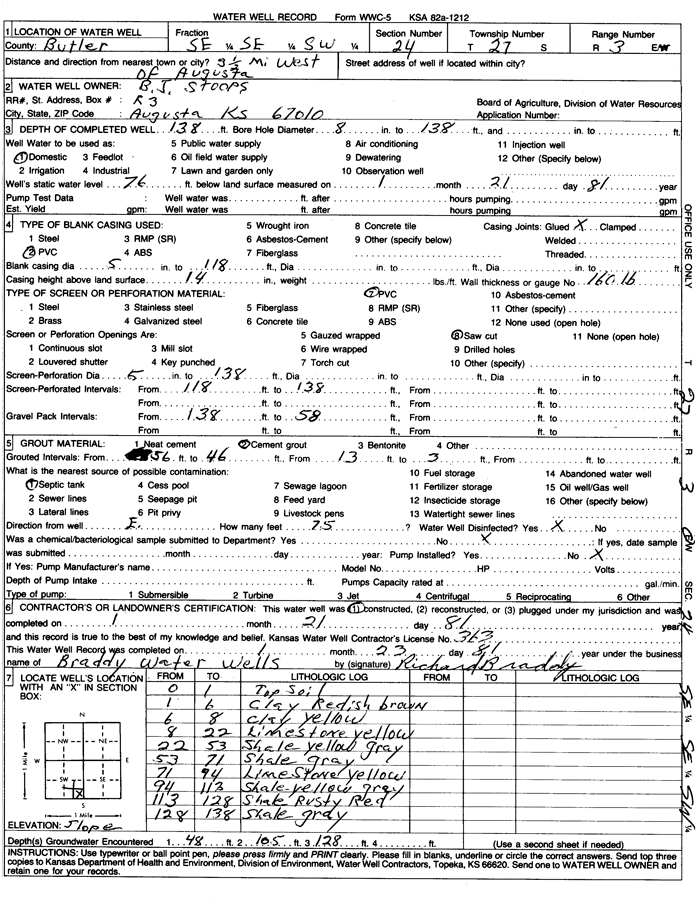 WATER WELL RECORD Form WWC-5 KSA 82a-1212
1 LOCATION OF WATER WELL Fraction Section Number Township Number Range Number
County: Butler SE ¼ SE ¼ SW ¼ 24 T 27 S R 3 E/W
Distance and direction from nearest town or city? 3½ Mi West of Augusta Street address of well if located within city?
2 WATER WELL OWNER: B.J. Stoops
RR#, St. Address, Box # : R 3 Board of Agriculture, Division of Water Resources
City, State, ZIP Code : Augusta Ks 67010 Application Number:
3 DEPTH OF COMPLETED WELL 138 ft. Bore Hole Diameter 8 in. to 138 ft., and in. to ft.
Well Water to be used as: 5 Public water supply 8 Air conditioning 11 Injection well
1 Domestic 3 Feedlot 6 Oil field water supply 9 Dewatering 12 Other (Specify below)
2 Irrigation 4 Industrial 7 Lawn and garden only 10 Observation well
Well's static water level 76 ft. below land surface measured on 1 month 21 day 81 year
Pump Test Data : Well water was ft. after hours pumping gpm
Est. Yield gpm: Well water was ft. after hours pumping gpm
4 TYPE OF BLANK CASING USED: 5 Wrought iron 8 Concrete tile Casing Joints: Glued X Clamped
1 Steel 3 RMP (SR) 6 Asbestos-Cement 9 Other (specify below) Welded
2 PVC 4 ABS 7 Fiberglass Threaded
Blank casing dia 5 in. to 118 ft., Dia in. to ft., Dia in. to ft.
Casing height above land surface 14 in., weight lbs./ft. Wall thickness or gauge No 160 lb
TYPE OF SCREEN OR PERFORATION MATERIAL: 7 PVC 10 Asbestos-cement
1 Steel 3 Stainless steel 5 Fiberglass 8 RMP (SR) 11 Other (specify)
2 Brass 4 Galvanized steel 6 Concrete tile 9 ABS 12 None used (open hole)
Screen or Perforation Openings Are: 5 Gauzed wrapped 8 Saw cut 11 None (open hole)
1 Continuous slot 3 Mill slot 6 Wire wrapped 9 Drilled holes
2 Louvered shutter 4 Key punched 7 Torch cut 10 Other (specify)
Screen-Perforation Dia 5 in. to 138 ft., Dia in. to ft., Dia in. to ft.
Screen-Perforated Intervals: From 118 ft. to 138 ft., From ft. to ft.
From ft. to ft., From ft. to ft.
Gravel Pack Intervals: From 138 ft. to 58 ft., From ft. to ft.
From ft. to ft., From ft. to ft.
5 GROUT MATERIAL: 1 Neat cement 2 Cement grout 3 Bentonite 4 Other
Grouted Intervals: From 56 ft. to 46 ft., From 13 ft. to 3 ft., From ft. to ft.
What is the nearest source of possible contamination: 10 Fuel storage 14 Abandoned water well
1 Septic tank 4 Cess pool 7 Sewage lagoon 11 Fertilizer storage 15 Oil well/Gas well
2 Sewer lines 5 Seepage pit 8 Feed yard 12 Insecticide storage 16 Other (specify below)
3 Lateral lines 6 Pit privy 9 Livestock pens 13 Watertight sewer lines
Direction from well E. How many feet 75 ? Water Well Disinfected? Yes X No
Was a chemical/bacteriological sample submitted to Department? Yes No X : If yes, date sample
was submitted month day year: Pump Installed? Yes No X
If Yes: Pump Manufacturer's name Model No. HP Volts
Depth of Pump Intake ft. Pumps Capacity rated at gal./min.
Type of pump: 1 Submersible 2 Turbine 3 Jet 4 Centrifugal 5 Reciprocating 6 Other
6 CONTRACTOR'S OR LANDOWNER'S CERTIFICATION: This water well was (1) constructed, (2) reconstructed, or (3) plugged under my jurisdiction and was
completed on 1 month 21 day 81 year
and this record is true to the best of my knowledge and belief. Kansas Water Well Contractor's License No. 363
This Water Well Record was completed on 1 month 23 day 81 year under the business
name of Braddy Water Wells by (signature) Richard Braddy
7 LOCATE WELL'S LOCATION WITH AN "X" IN SECTION BOX:
FROM TO LITHOLOGIC LOG FROM TO LITHOLOGIC LOG
0 1 Top Soil
1 6 Clay Redish brown
6 8 Clay Yellow
8 22 Limestone yellow
22 53 Shale yellow gray
53 71 Shale gray
71 94 Limestone Yellow
94 113 Shale-yellow grey
113 128 Shale Rusty Red
128 138 Shale gray
N
NW NE
W E
SW SE
X
S
1 Mile
1 Mile
ELEVATION: Slope
Depth(s) Groundwater Encountered 1. 48 ft. 2. 105 ft. 3. 128 ft. 4. ft. (Use a second sheet if needed)
INSTRUCTIONS: Use typewriter or ball point pen, please press firmly and PRINT clearly. Please fill in blanks, underline or circle the correct answers. Send top three
copies to Kansas Department of Health and Environment, Division of Environment, Water Well Contractors, Topeka, KS 66620. Send one to WATER WELL OWNER and
retain one for your records.
OFFICE USE ONLY
T 27
R 3
E/W
SEC. 24
SE ¼
SE ¼
SW ¼